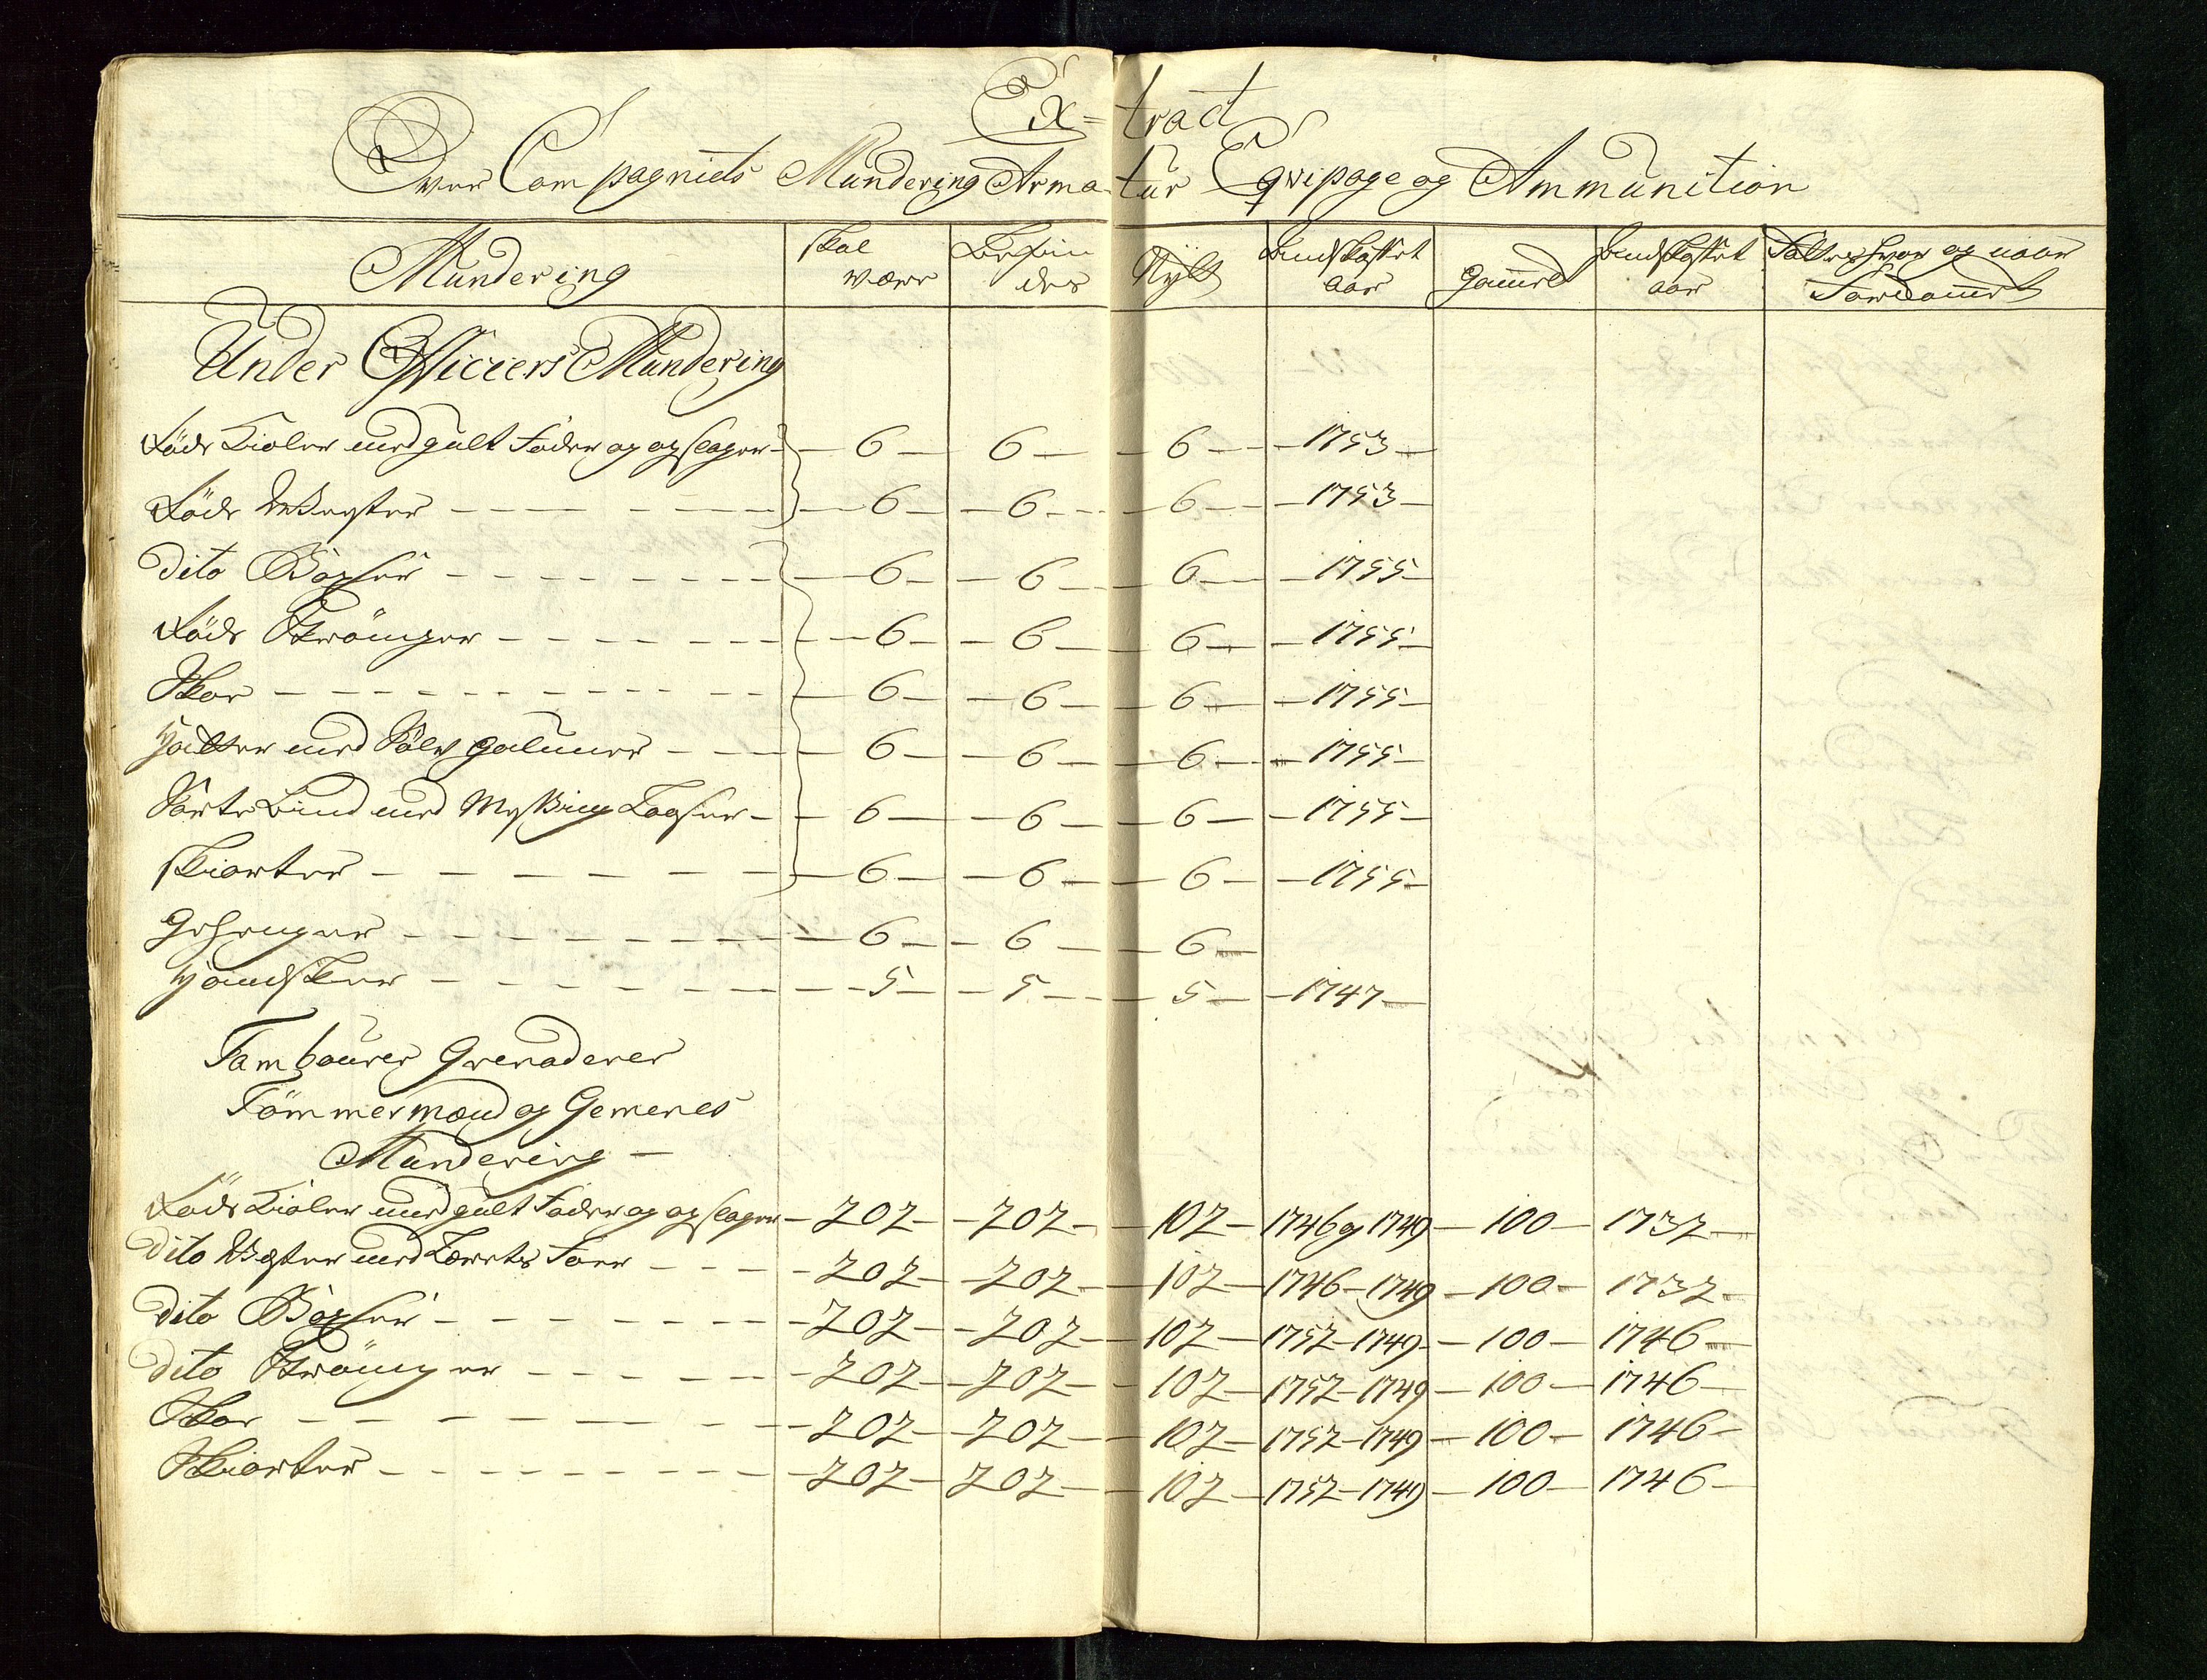 Ex= tract
Over Compagniets Mundering Arma tur Eqvipage og Ammunition
Mundering | skal være | Befin des | Nÿtt | Andskaffet aar | Gammelt | Andskaffet aar | Fattes hvor og naar
Under Officeers Mundering
Röde Kioler med gult Foder og opslager — 6 — 6 — 6 — 1753
Röde Wester — 6 — 6 — 6 — 1753
Dito Böxser — 6 — 6 — 6 — 1755
Röde Strömper — 6 — 6 — 6 — 1755
Skoe — 6 — 6 — 6 — 1755
Hatter med Sölv galuner — 6 — 6 — 6 — 1755
Sorte Bind med Messing — 6 — 6 — 6 — 1755
skiorter — 6 — 6 — 6 — 1755
Gehenger — 6 — 6 — 6
Handsker — 5 — 5 — 5 — 1747
Tambourer Grenaderer
Tömmermænd og Gemenes
Mundering —
Röde Kioler med gult Foder og opslager — 202 — 202 — 102 — 1746 og 1749 — 100 — 1732
Dito Wester med Lærets Foer — 202 — 202 — 102 — 1746 — 1749 — 100 — 1732
Dito Böxser — 202 — 202 — 102 — 1752 — 1749 — 100 — 1746
Dito Strömper — 202 — 202 — 102 — 1752 — 1749 — 100 — 1746
Skoe — 202 — 202 — 102 — 1752 — 1749 — 100 — 1746
Skiorter — 202 — 202 — 102 — 1752 — 1749 — 100 — 1746